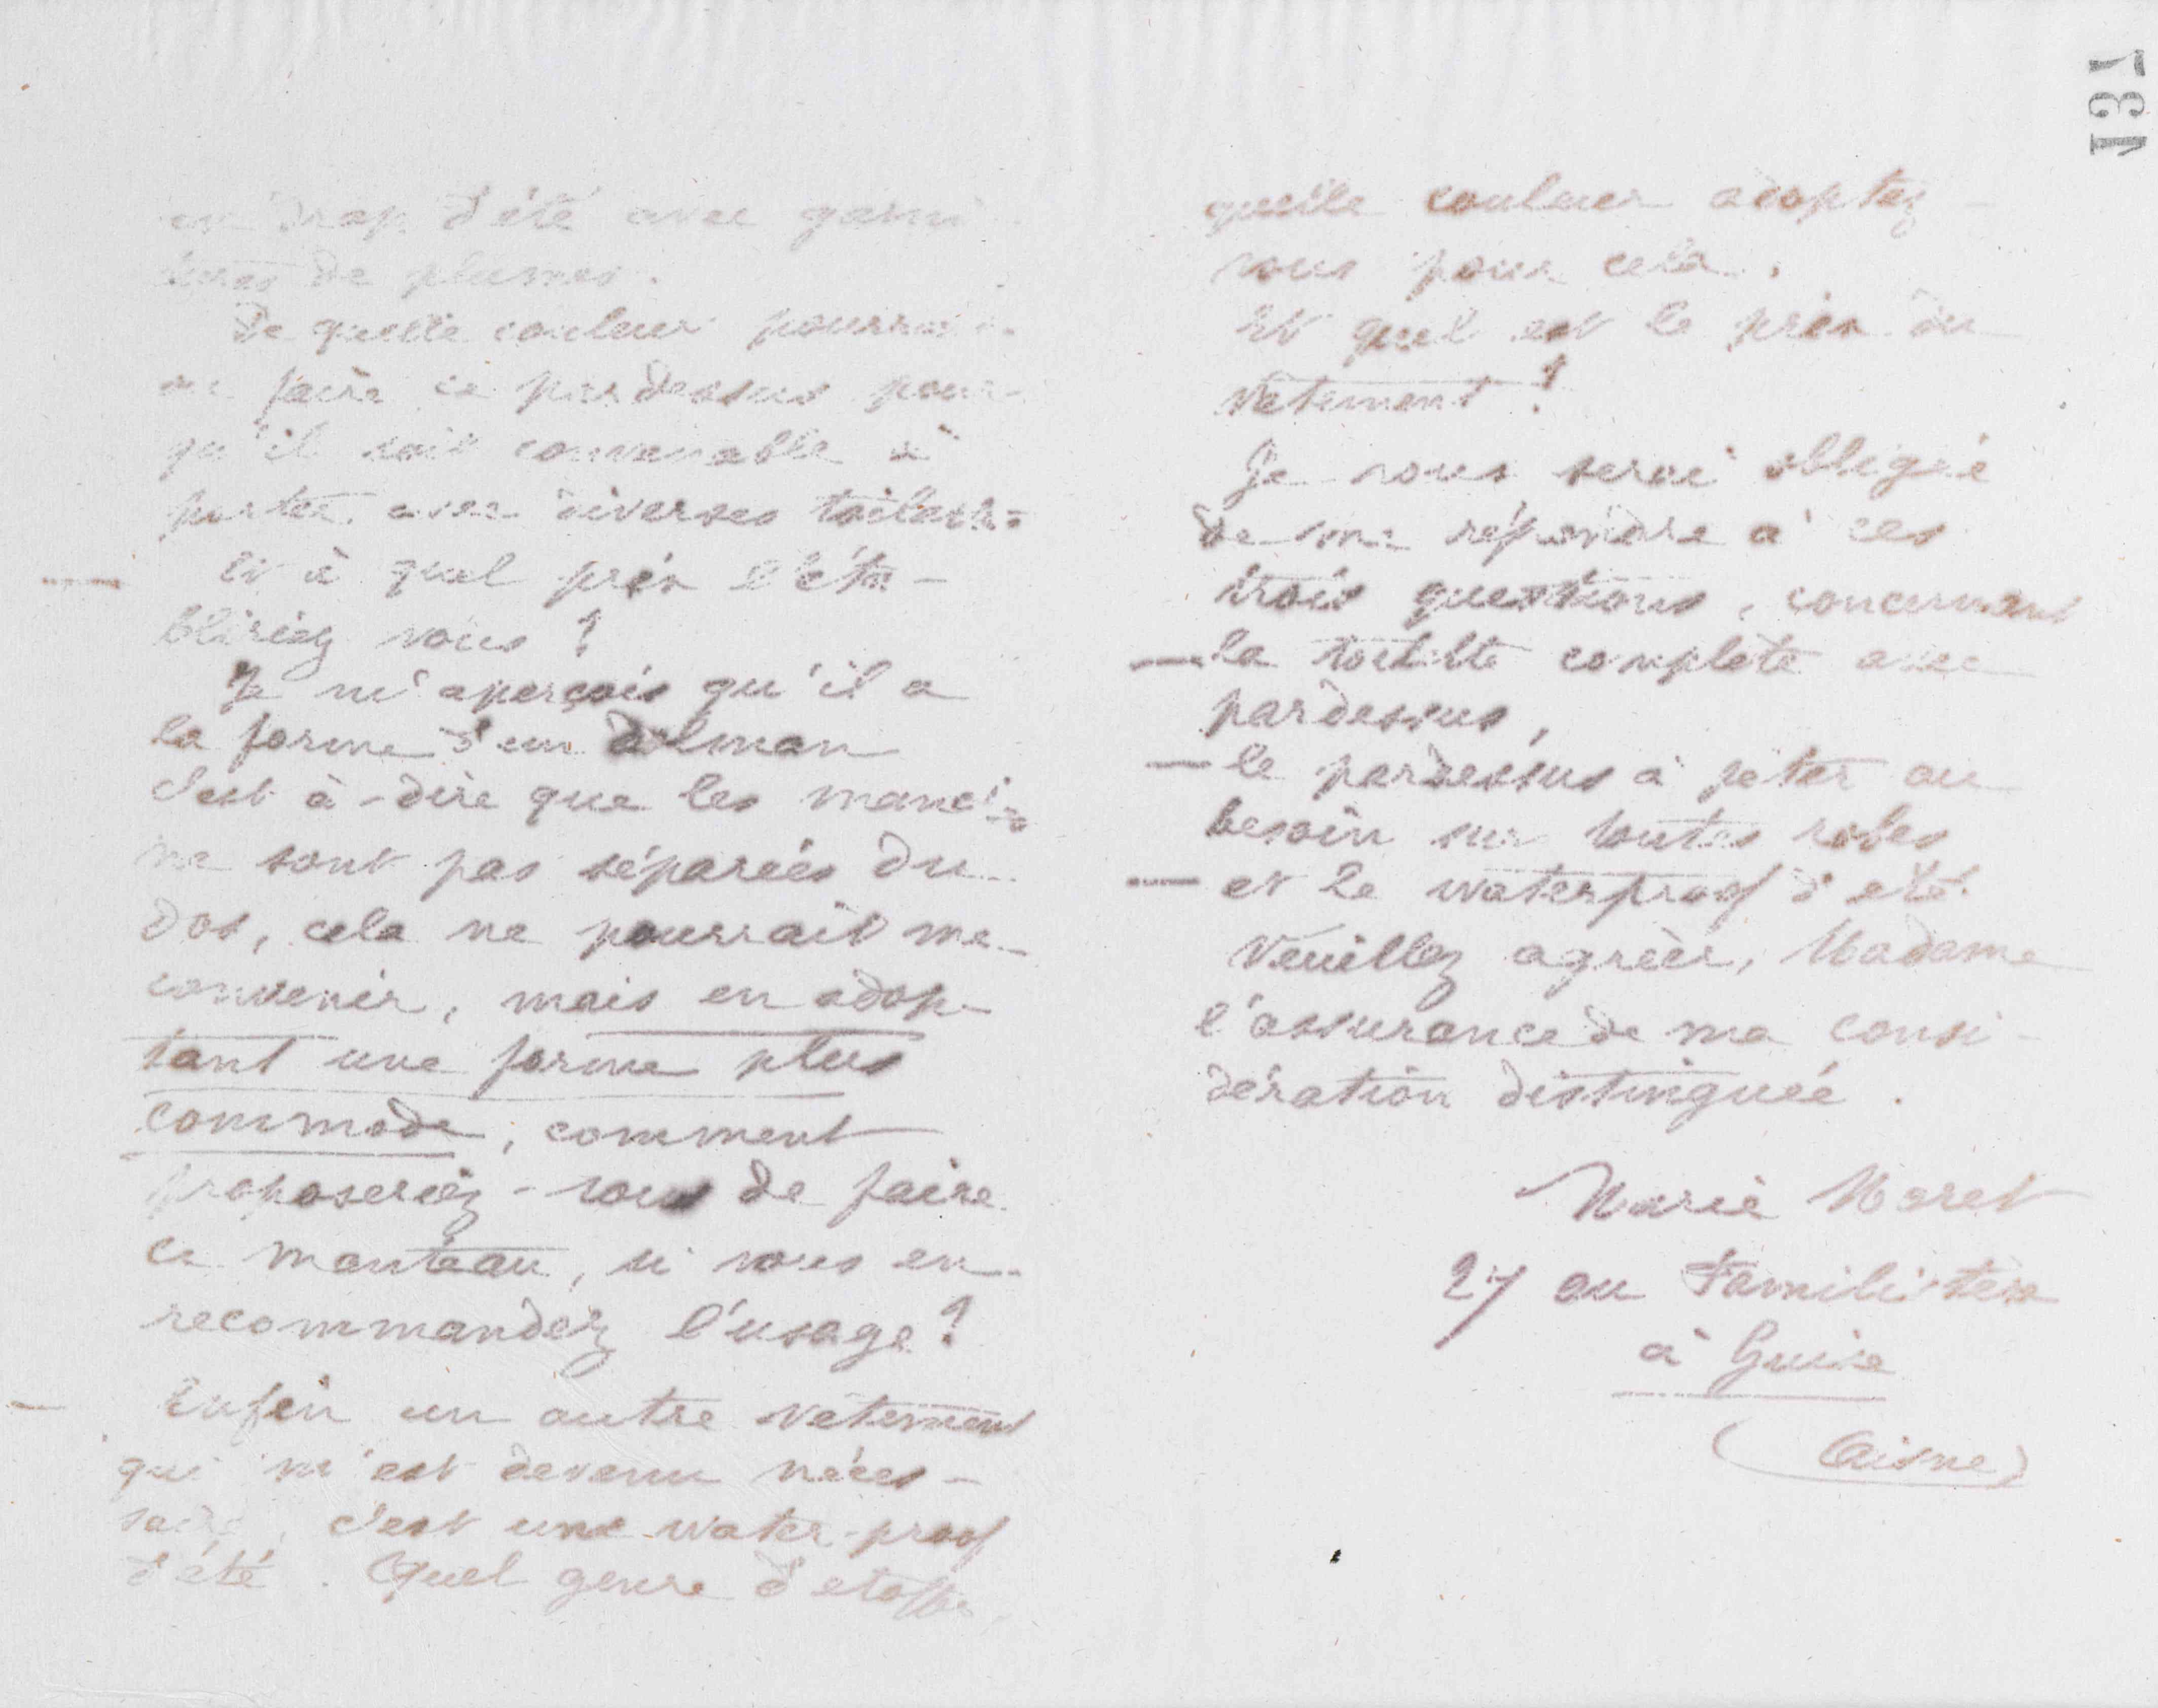 en drap d'été avec garni
tures de plumes.
De quelle couleur pourrait-
on faire ce pardessus pour
qu'il soit convenable à
porter avec diverses toilettes
— Et à quel prix l'éta-
bliriez vous ?
Je m'aperçois qu'il a
la forme d'un dolman
c'est à-dire que les manches
ne sont pas séparées du
dos, cela ne pourrait me
convenir, mais en adop-
tant une forme plus
commode, comment
proposeriez-vous de faire
ce manteau, si vous en
recommandez l'usage ?
— Enfin un autre vêtement
qui m'est devenu néces-
saire, c'est une water-proof
d'été. Quel genre d'etoffe
quelle couleur adoptez-
vous pour cela.
Et quel est le prix du
vêtement ?
Je vous serai obligée
de me répondre à ces
trois questions, concernant
— la toilette complète avec
pardessus,
— le pardessus à jeter au
besoin sur toutes robes
— et le waterproof d'eté.
Veuillez agréer, Madame
l'assurance de ma consi-
dération distinguée.
Marie Moret
27 au Familistère
à Guise
(Aisne)